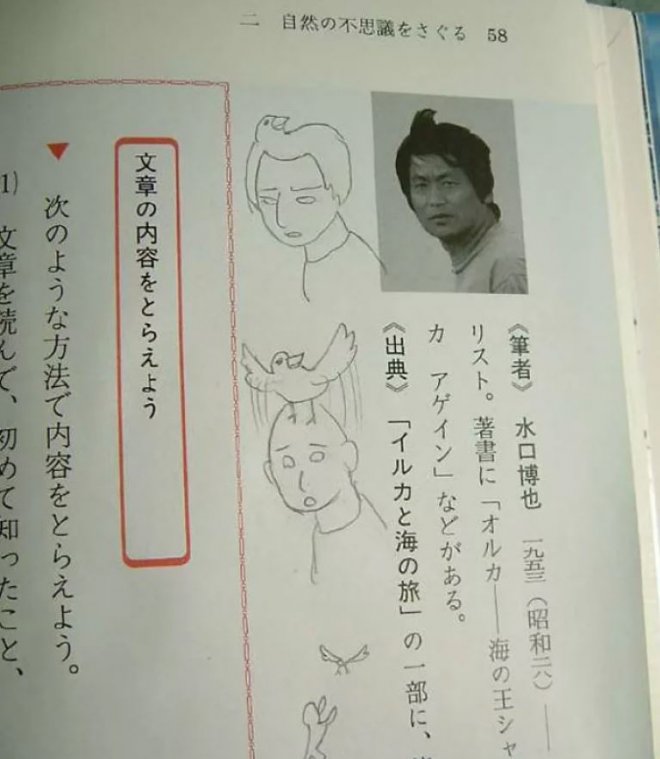 二 自然の不思議をさぐる 58
《筆者》 水口博也 一九五三(昭和二八)――
リスト。著書に「オルカ――海の王シャ
カ アゲイン」などがある。
《出典》 「イルカと海の旅」の一部に、
文章の内容をとらえよう
▼ 次のような方法で内容をとらえよう。
1) 文章を読んで、初めて知ったこと、